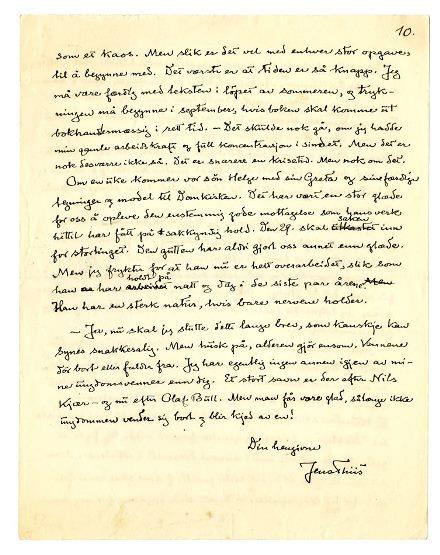 10.
som et kaos. Men slik er det vel med enhver stor opgave,
til å begynne med. Det værste er at tiden er så knapp. Jeg
må være færdig med teksten i løpet av sommeren, og tryk-
ningen må begynne i september, hvis boken skal komme ut
bokhandlermæssig i rett tid. – Det skulde nok gå, om jeg hadde
min gamle arbeidskraft og full konsentrasjon i sinnet. Men det er
nok desværre ikke så. Det er snarere en krisetid. Men nok om det.
Om en uke kommer vor sön Helge med sin Greta og sine færdige
tegninger og model til Domkirken. Det har vært en stor glæde
for oss å opleve den enstemmig gode mottagelse som hans verk
hittil har fått på sakkyndig hold. Den 29. skal saken inn
for stortinget. Den gutten har aldri gjort oss annet enn glæde.
Men jeg frykter for at han nu er helt overarbeidet, slik som
han har holdt på natt og dag i de siste par årene.
Han har en sterk natur, hvis bare nervene holder.
– Ja, nu skal jeg slutte dette lange brev, som kanskje kan
synes snakkesalig. Men husk på, alderen gjör ensom. Vennene
dör bort eller falder fra. Jeg har egentlig ingen annen igjen av mi-
ne ungdomsvenner enn dig. Et stort savn er der efter Nils
Kjær – og nu efter Olaf Bull. Men man får være glad, sålenge ikke
ungdommen vender sig bort og blir kjed av en!
Din hengivne
Jens Thiis